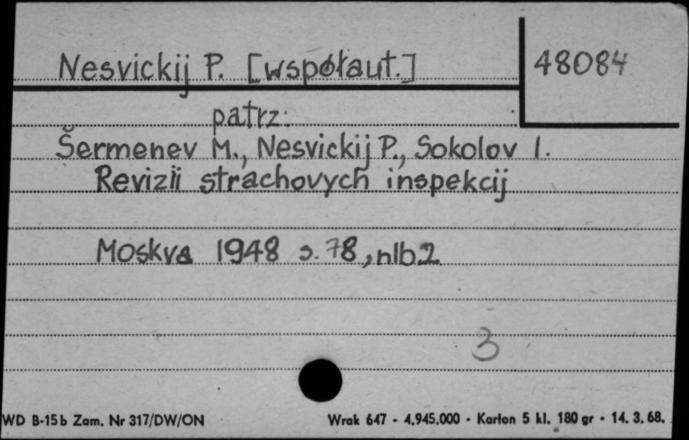 Nesvickij P. [współaut.]
48084
patrz:
Šermenev M., Nesvickij P., Sokolov I.
Revizii strachovych inspekcij
Moskva 1948 s. 78, nlb 2
3
WD B-15b Zam. Nr 317/DW/ON
Wrak 647 - 4.945.000 - Karton 5 kl. 180 gr - 14. 3. 68.